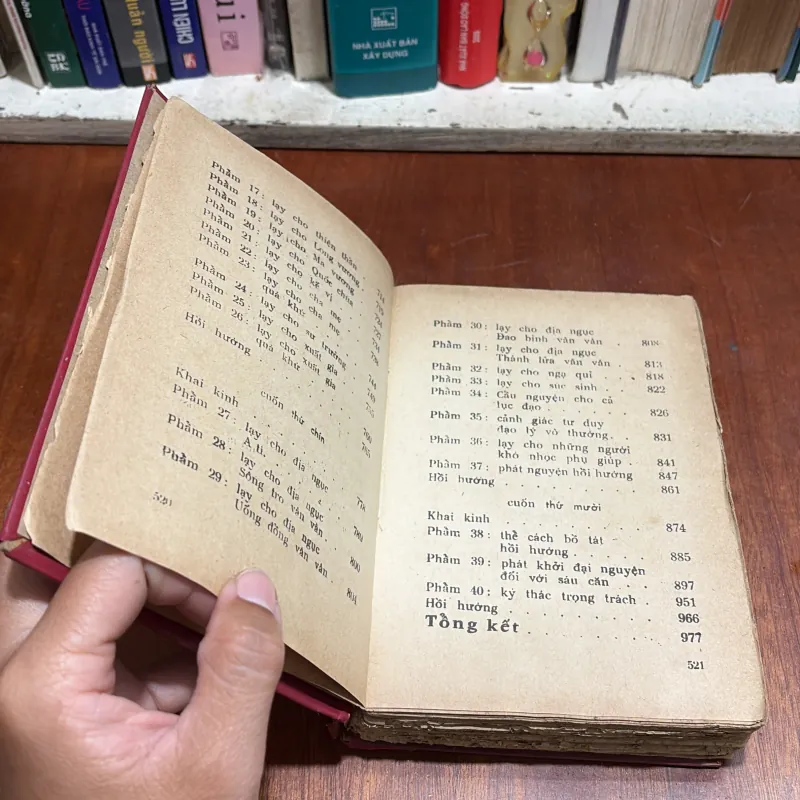 uẩn người
CHIẾN
ui
NHÀ XUẤT BẢN
XÂY DỰNG
Phẩm 17: lạy cho thiên thần
Phẩm 18: lạy cho Long vương
Phẩm 19: lạy cho Ma vương
Phẩm 20: lạy cho Quốc chúa
Phẩm 21: lạy cho kế vị
Phẩm 22: lạy cho cha mẹ
Phẩm 23: lạy cho cha mẹ
quá khứ
Phẩm 24: lạy cho sư trưởng
Phẩm 25: lạy cho xuất gia
Phẩm 26: lạy cho xuất gia
quá khứ
Hồi hướng
cuốn thứ chín
Khai kinh 760
Phẩm 27: lạy cho địa ngục
A tì
Phẩm 28: lạy cho địa ngục
Sông tro vân vân 780
Phẩm 29: lạy cho địa ngục 800
Uống đồng vân vân 801
Phẩm 30: lạy cho địa ngục
Đao binh vân vân . 808
Phẩm 31: lạy cho địa ngục
Thành lửa vân vân . 813
Phẩm 32: lạy cho ngạ quỉ . 818
Phẩm 33: lạy cho súc sinh . 822
Phẩm 34: Cầu nguyện cho cả
lục đạo . . . . . 826
Phẩm 35: cảnh giác tư duy
đạo lý vô thường. . 831
Phẩm 36: lạy cho những người
khó nhọc phụ giúp. 841
Phẩm 37: phát nguyện hồi hướng 847
Hồi hướng . . . . . . 861
cuốn thứ mười
Khai kinh . . . . . . 874
Phẩm 38: thể cách bồ tát
hồi hướng . . . . 885
Phẩm 39: phát khởi đại nguyện
đối với sáu căn . . 897
Phẩm 40: ký thác trọng trách . 951
Hồi hướng . . . . . . 966
Tổng kết . . . . . . 977
521